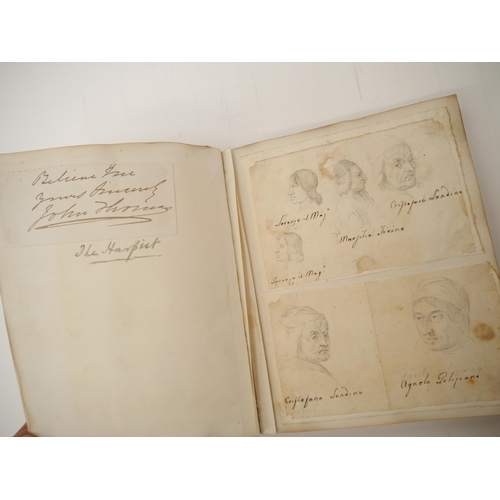 Believe Me
Yours Sincerely
John Thomas
The Harpist
Lorenzo il Mag.º
Cristoforo Landino
Marsilio Ficino
Lorenzo il Mag.º
Cristofano Landino
Agnolo Poliziano